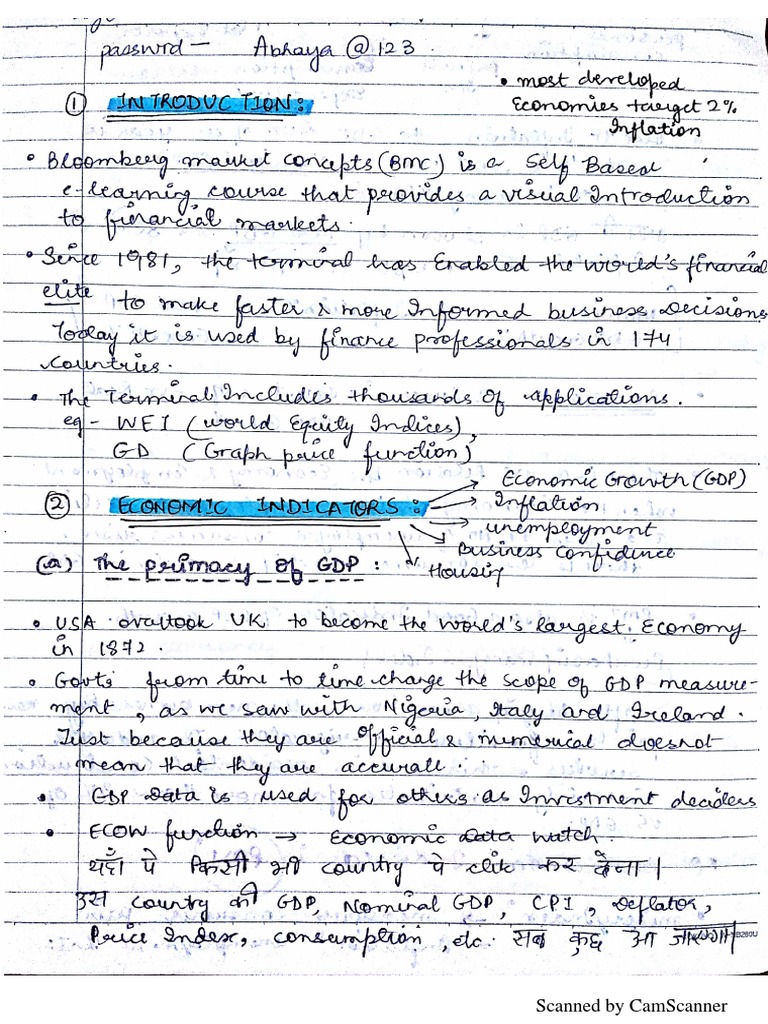 password - Abhaya @ 123.
• most developed
Economies target 2%
Inflation
① INTRODUCTION:
• Bloomberg market concepts (BMC) is a Self Based
e-learning course that provides a visual Introduction
to financial markets.
• Since 1981, the terminal has Enabled the world's financial
elite to make faster & more Informed business Decisions
Today it is used by finance professionals in 174
countries.
• The Terminal Includes thousands of applications.
eg - WEI (world Equity Indices),
GD (Graph price function)
② ECONOMIC INDICATORS:
Economic Growth (GDP)
Inflation
unemployment
Business Confidence
Housing
(a) The primacy of GDP:
• USA ovaltook UK to become the world's largest Economy
in 1872.
• Govts from time to time change the scope of GDP measure-
ment, as we saw with Nigeria, Italy and Ireland.
Just because they are official & numerical doesnot
mean that they are accurate.
• GDP Data is used for others as Investment deciders
• ECOW function → Economic Data watch.
यहाँ पे किसी भी country पे clik कर देना।
उस country की GDP, Nominal GDP, CPI, Deflator,
Price Index, consumption, etc. सब कुछ आ जाएगा|
Scanned by CamScanner